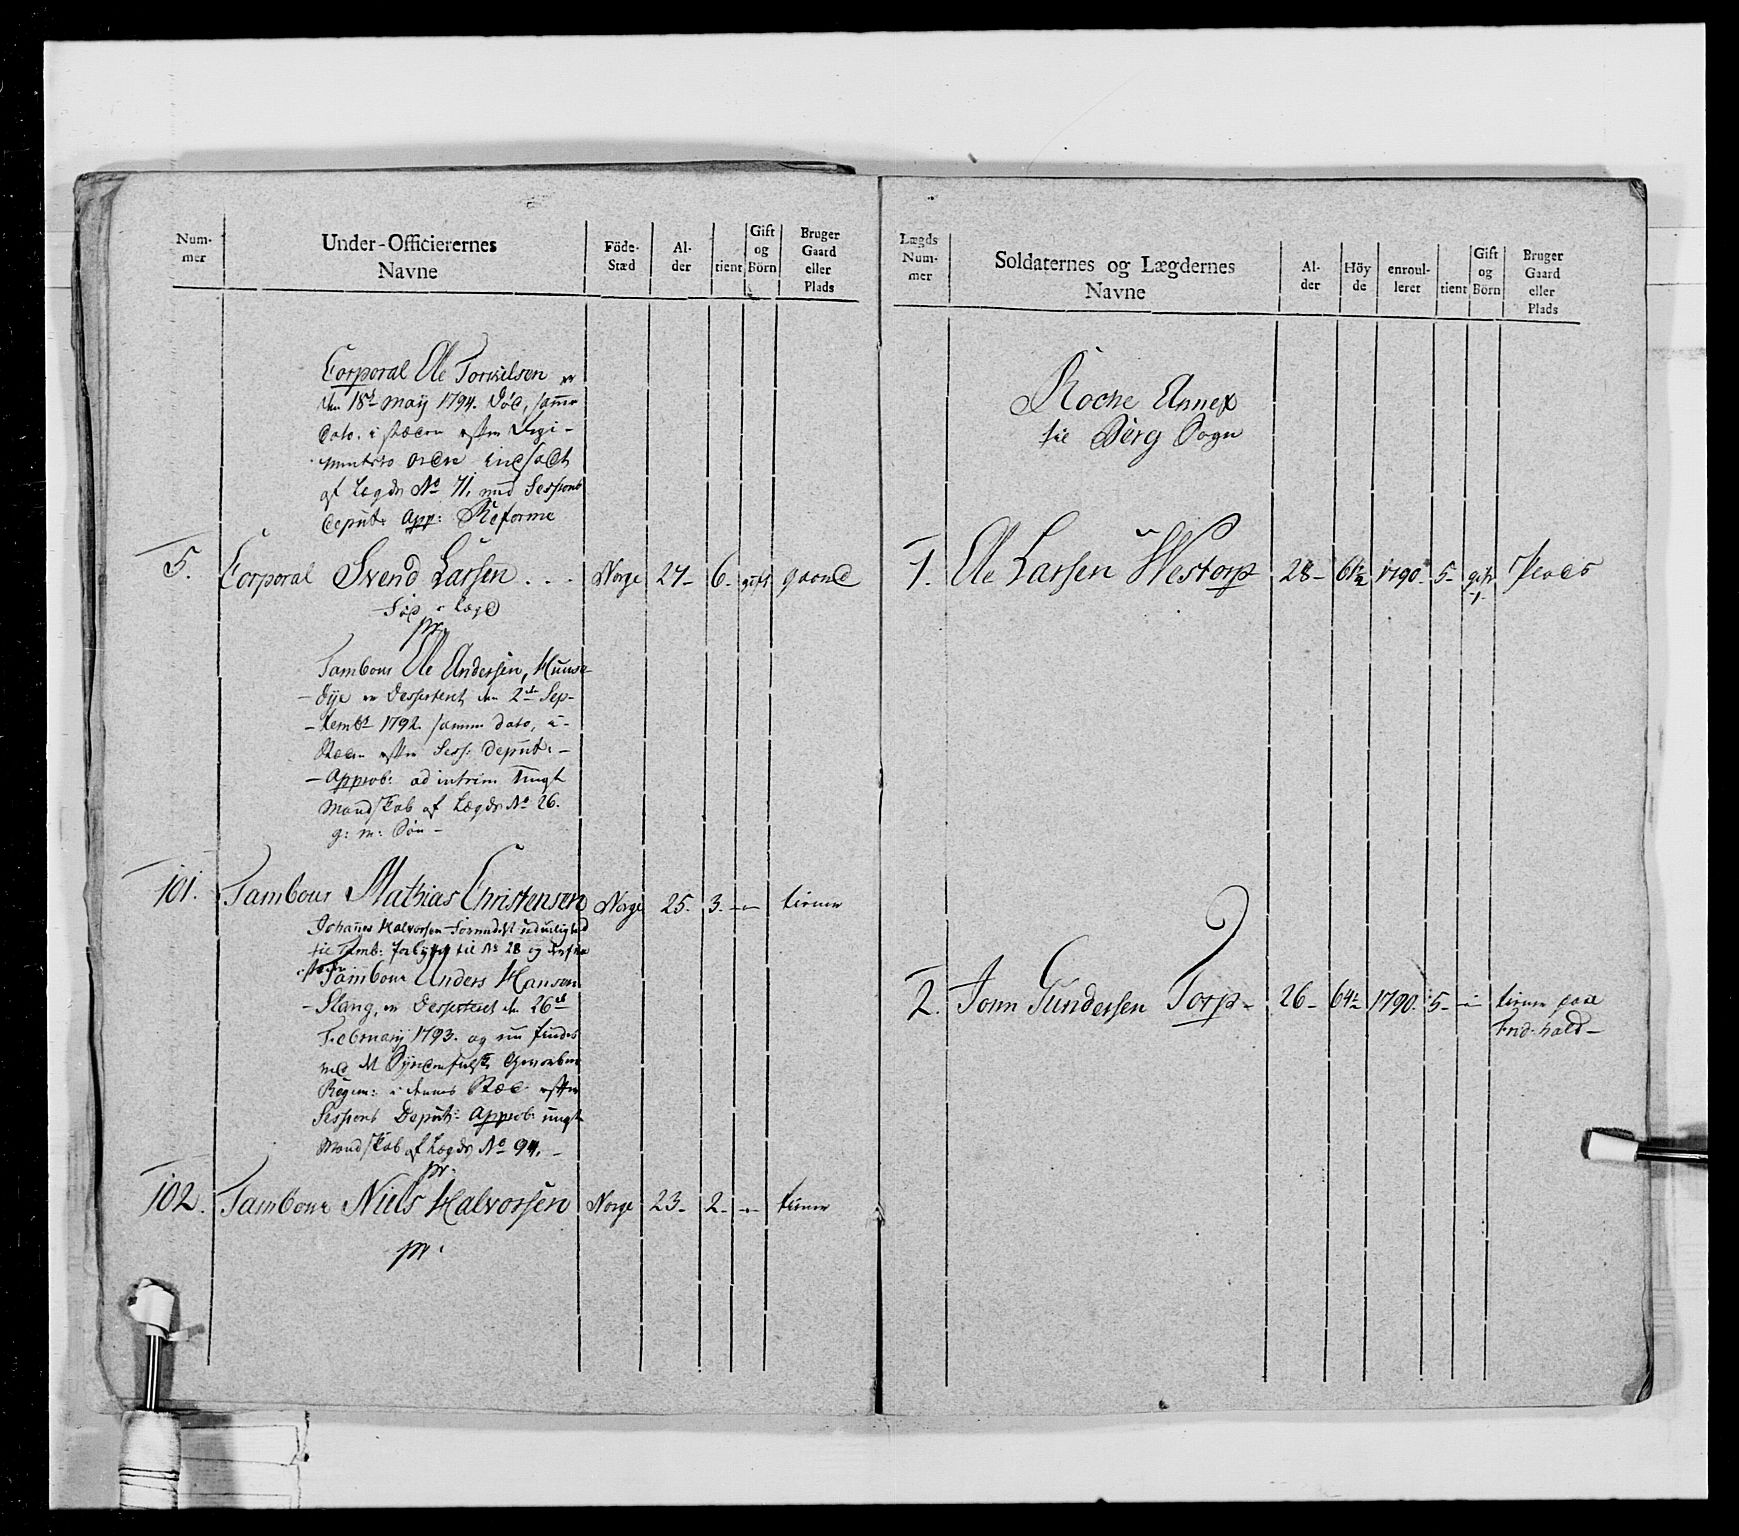 Num-
mer
Under-Officierernes
Navne
Föde-
Stæd
Al-
der
tient
Gift
og
Börn
Bruger
Gaard
eller
Plads
Corporal Ole Torkilsen er
den 18de Maÿ 1794. död, samme
Dato. i stæden efter Regi-
mentets Ordre indsadt
af Legds No 71, med Sessions
Deput: App: Reforme
5. Corporal Svend Larsen . . . Norge 27- 6- gift gaard
Tambour Ole Andersen, Hunse-
-bÿe er Dessertert den 2de Sep-
-tembr 1792. samme dato, i-
Stæden efter Sess: Deput:-
-Approb: ad intrim ungt
Mandskab af Lægds No 26.
g: m: Sön-
101. Tambour Mathias Christensen Norge 25. 3. -"- tiener
Johannes Halvorsen formedelst uduelighed
til Tamb: forbÿtt til No 28 og
Tambour Anders Hansen
-Slang, er Dessertert den 26de
Februarÿ 1793. og nu findes
ved det Sÿndenfieldske Gevorbne
Regim: i dennes Stæd efter
Sessions Deput: Approb: ungt
Mandskab af Lægds No 94. -
pr.
102. Tambour Niels Halvorsen Norge 23- 2- -"- tiener
pr.
Lægds
Num-
mer
Soldaternes og Lægdernes
Navne
Al-
der
Höy
de
enroul-
leret
tient
Gift
og
Börn
Bruger
Gaard
eller
Plads
Rocke Annex
til Berg Sogn
1. Ole Larsen Westorp 28- 1790. 5- gift 1. Plads
2. Jonn Gundersen Torp- 26- 64½ 1790. 5- -"- tiener paa
Frid:hald-